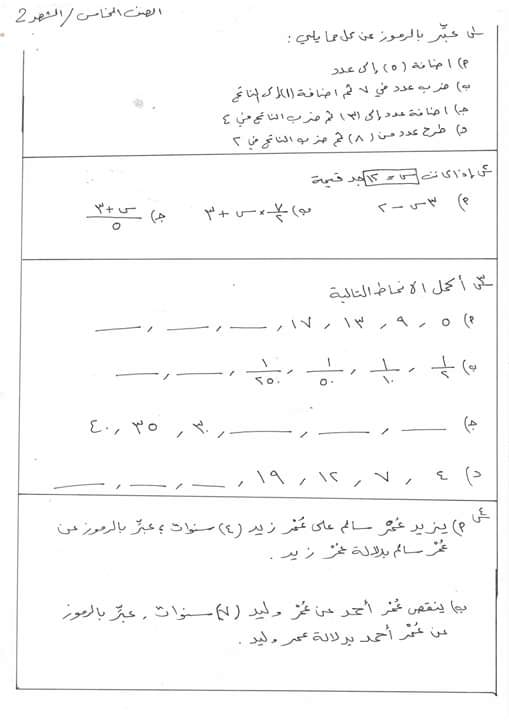 الصف الخامس / الشهر 2
س١ عبّر بالرموز عن كل مما يلي :
أ) اضافة (٥) إلى عدد
ب) ضرب عدد في ٧ ثم اضافة (١) إلى الناتج
جـ) اضافة عدد إلى (٣) ثم ضرب الناتج في ٤
د) طرح عدد من (٨) ثم ضرب الناتج في ٢
س٢ إذا كانت س = ١٢ جد قيمة
أ) ٣س – ٢ ب) ٧/٢ × س + ٣ جـ) س + ٣ / ٥
س٣ أكمل الانماط التالية
أ) ٥ ، ٩ ، ١٣ ، ١٧ ، __ ، __ ، __
ب) ١/٢ ، ١/١٠ ، ١/٥٠ ، ١/٢٥٠ ، __ ، __
جـ) __ ، __ ، __ ، ٣٠ ، ٣٥ ، ٤٠
د) ٤ ، ٧ ، ١٢ ، ١٩ ، __ ، __ ، __
س٤ أ) يزيد عُمْر سالم على عُمْر زيد (٤) سنوات ، عبّر بالرموز عن
عُمْر سالم بدلالة عُمْر زيد .
ب) ينقص عُمْر أحمد عن عُمْر وليد (٧) سنوات . عبّر بالرموز
عن عُمْر أحمد بدلالة عمر وليد .